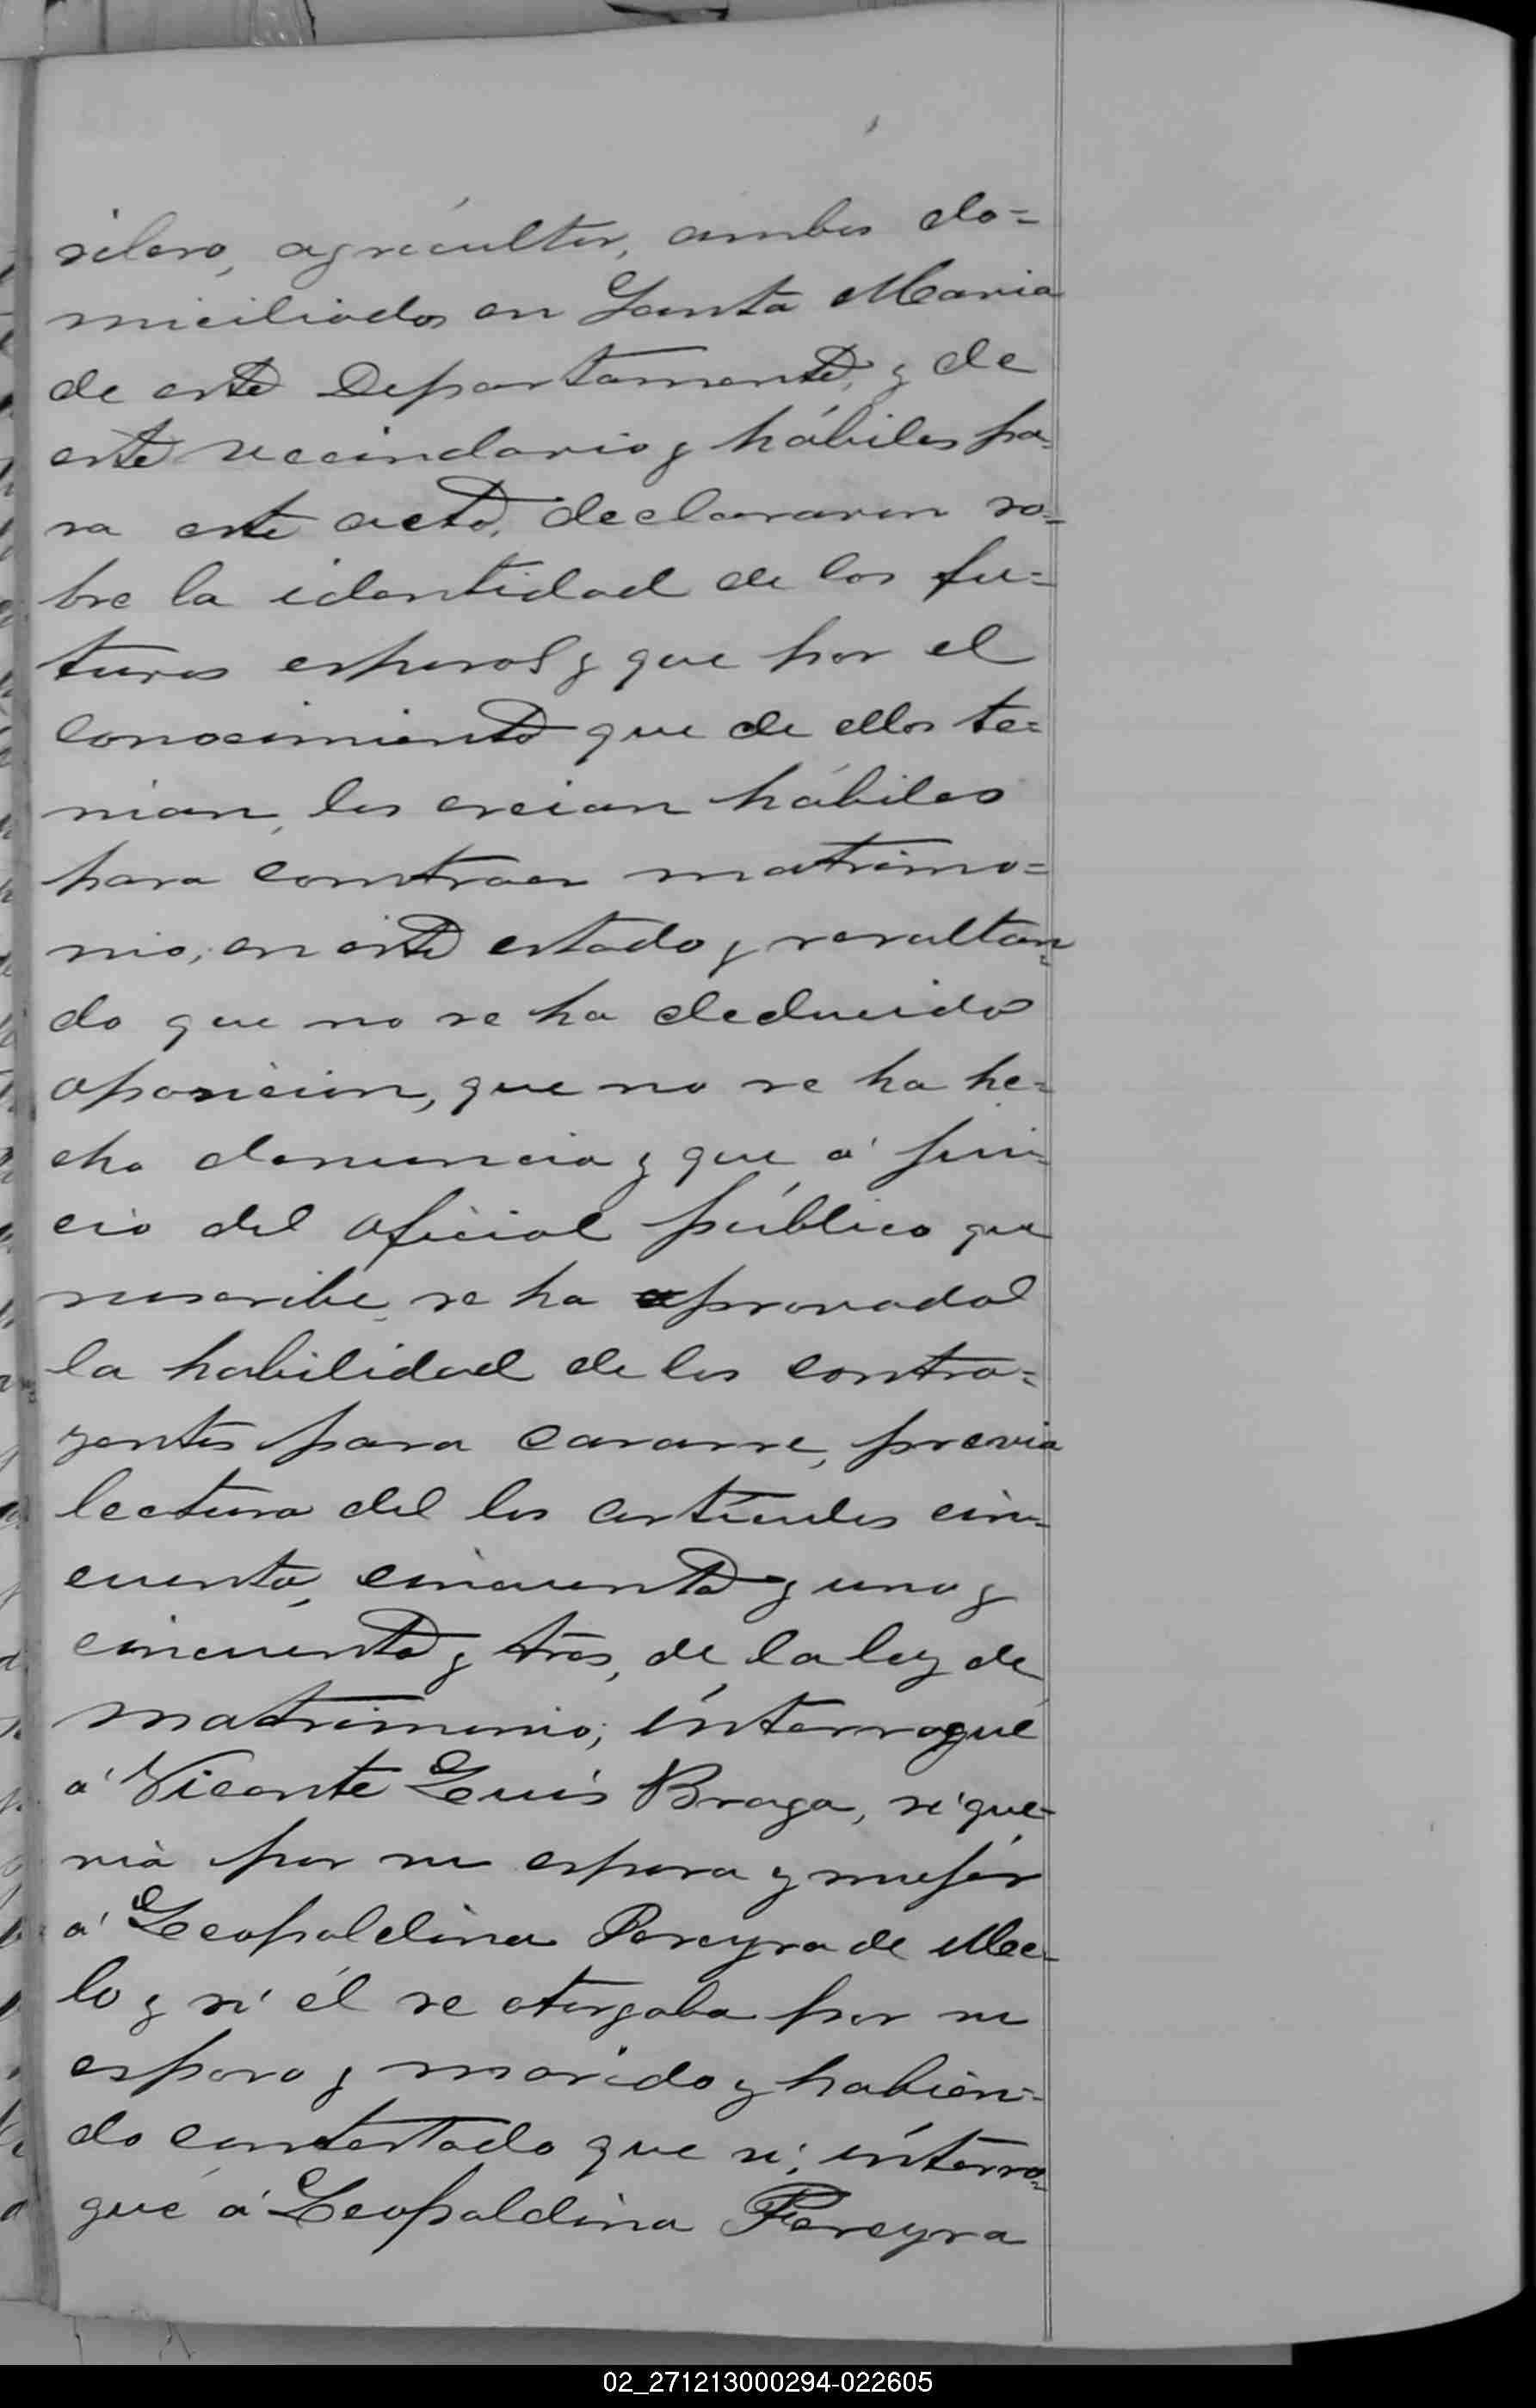 silero, agricultor, ambos do=
miciliados en Santa Maria
de este Departamento, y de
este vecindario y hábiles pa=
ra este acto, declararon so=
bre la identidad de los fu=
turos esposos y que por el
conocimiento que de ellos te=
nian, los creian hábiles
para contraer matrimo=
nio; en este estado y resultan=
do que no se ha deducido
oposicion, que no se ha he=
cho denuncia y que á jui=
cio del oficial público que
suscribe, se ha aprovado
la habilidad de los contra=
yentes para casarse, previa
lectura del los artículos cin=
cuenta, cincuenta y uno y
cincuenta y tres, de la ley de
matrimonio; interrogué
á Vicente Luis Braga, si que=
ria por su esposa y mujer
á Leopoldina Pereyra de Me=
lo y si él se otorgaba por su
esposo y marido y habien=
do contestado que si; interro=
gué á Leopoldina Pereyra
02_271213000294-022605